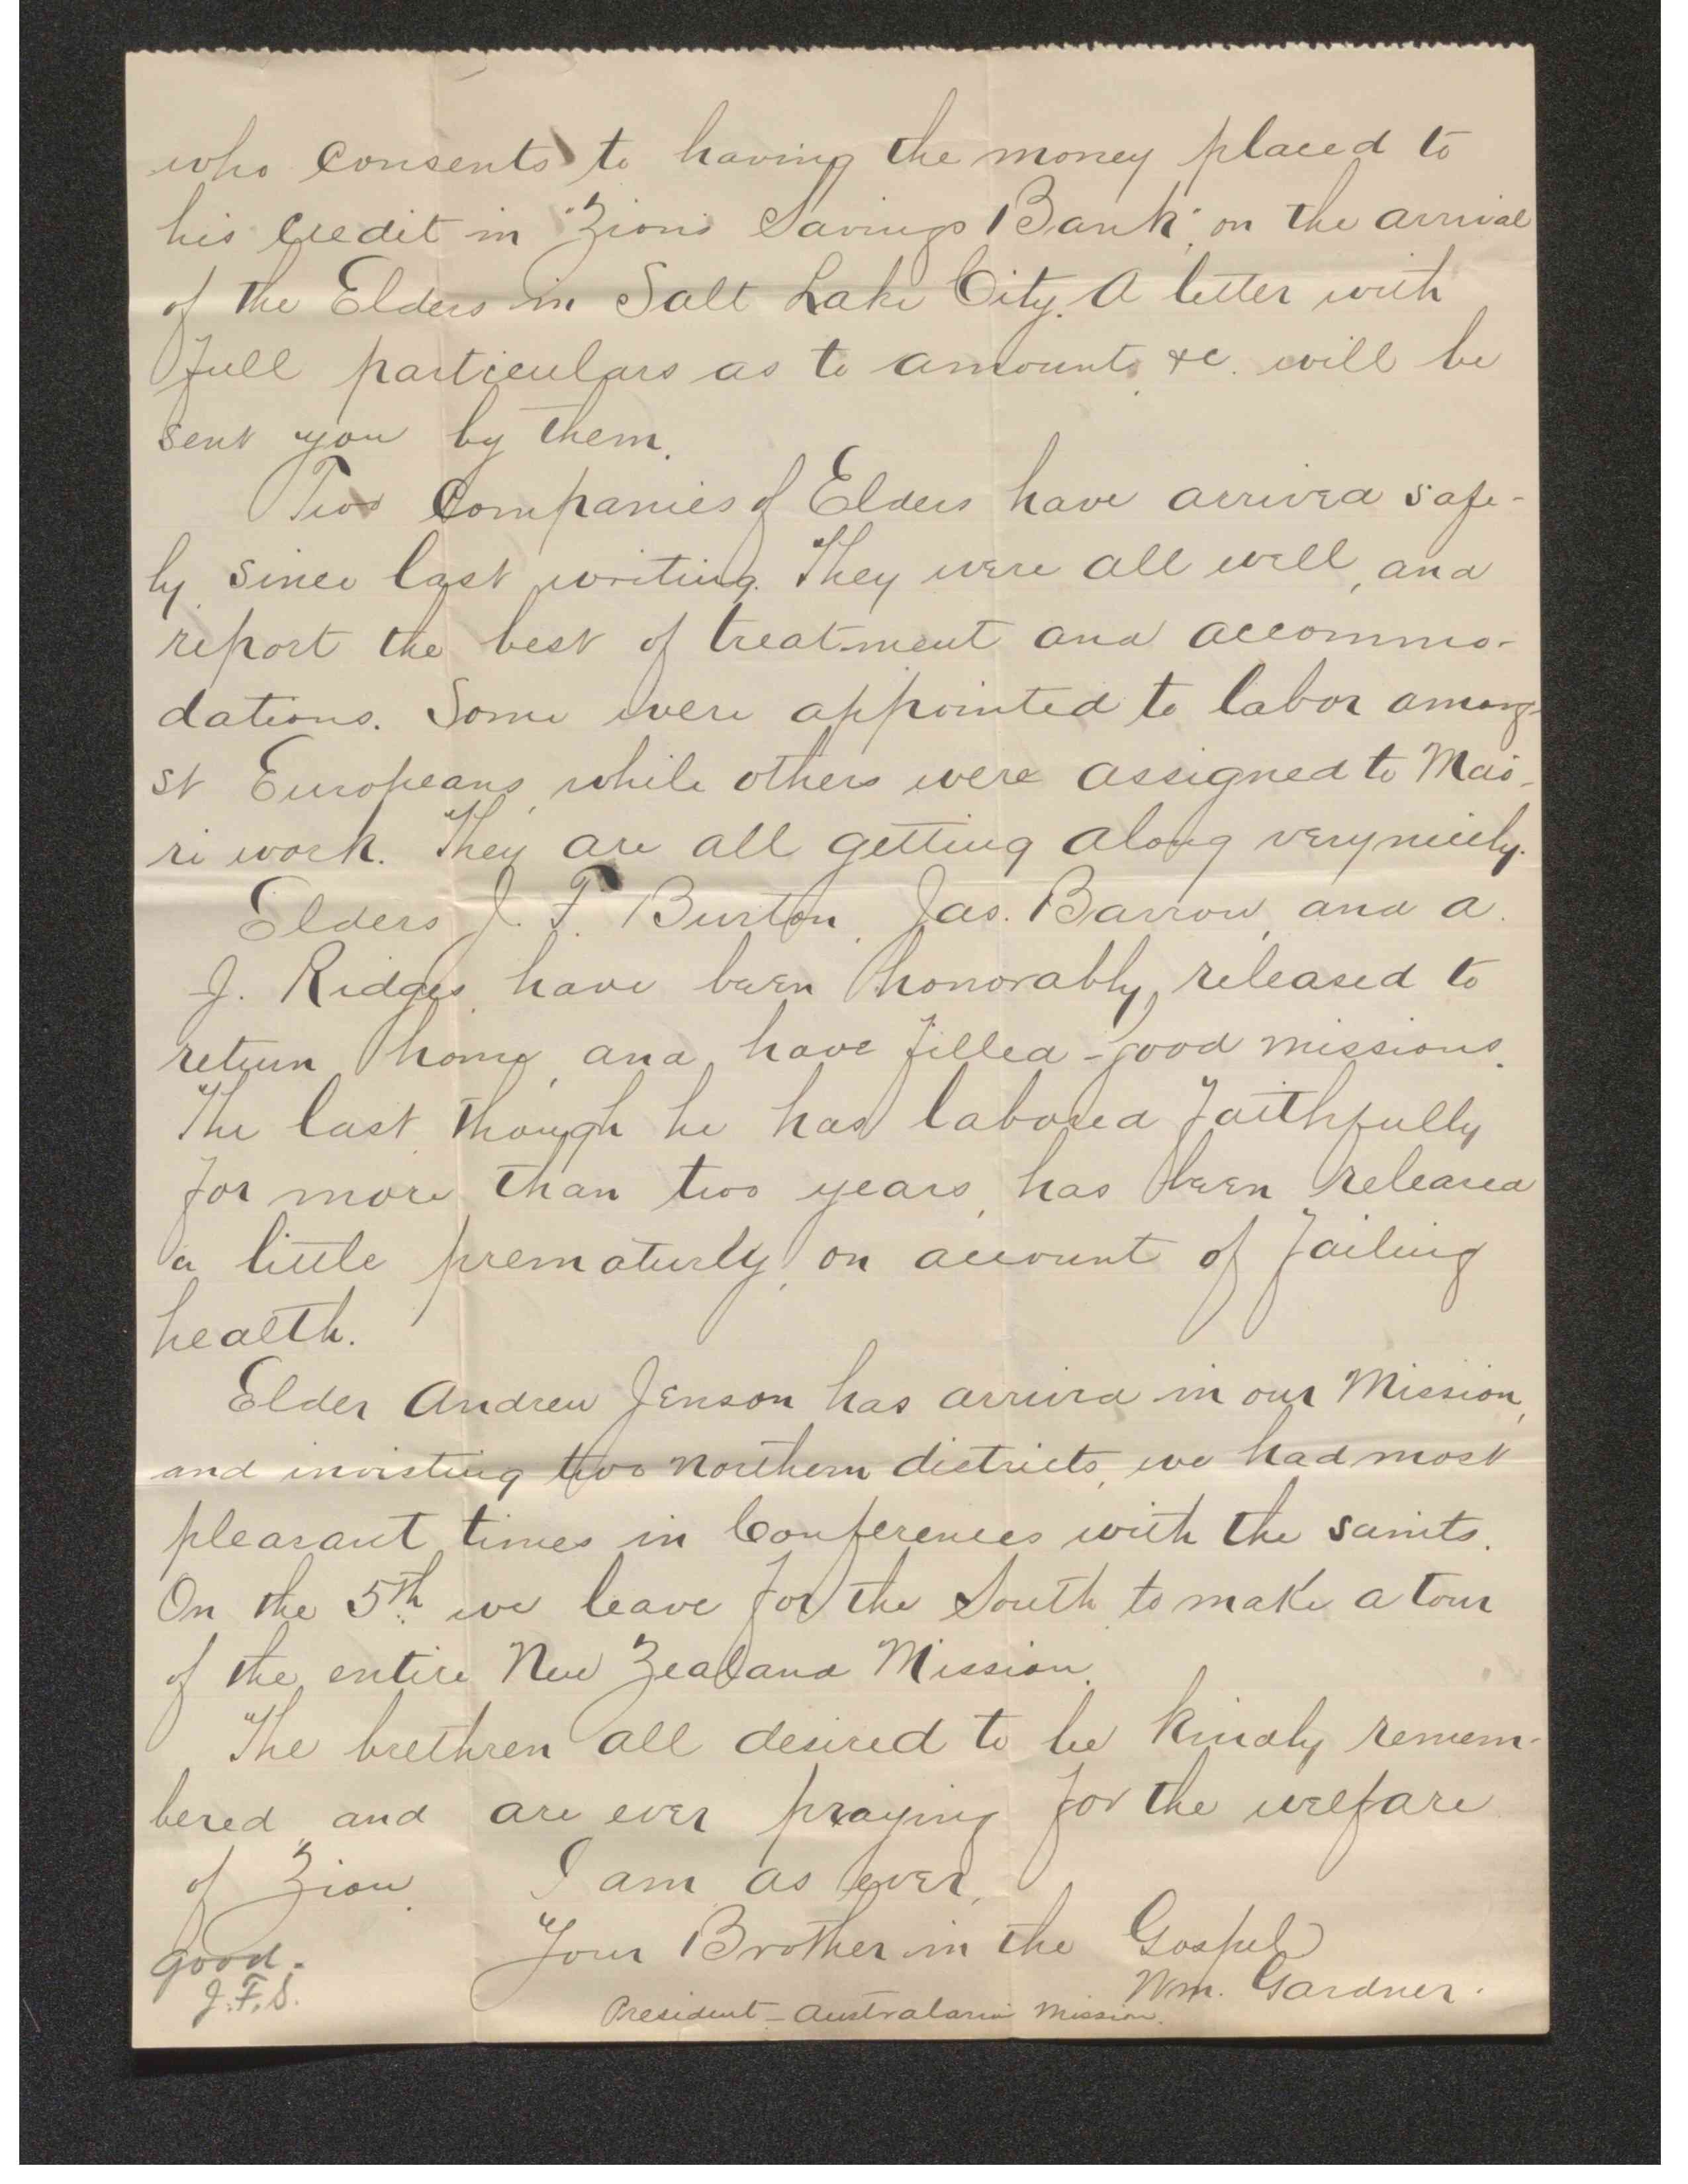 who consents to having the money placed to
his credit in "Zion's Savings Bank" on the arrival
of the Elders in Salt Lake City. A letter with
full particulars as to amounts, &c. will be
sent you by them.
Two Companies of Elders have arrived safe-
ly since last writing. They were all well, and
report the best of treatment and accommo-
dations. Some were appointed to labor among-
st Europeans, while others were assigned to Mao-
ri work. They are all getting along very nicely.
Elders J. F. Burton, Jas. Barrow, and A.
J. Ridges, have been honorably released to
return home, and have filled good missions.
The last though he has labored faithfully
for more than two years, has been released
a little prematurly, on account of failing
health.
Elder Andrew Jenson has arrived in our Mission,
and in visting two northern districts, we had most
pleasant times in Conferences with the saints.
On the 5th we leave for the South to make a tour
of the entire New Zealand Mission.
The brethren all desired to be kindly remem-
bered and are ever praying for the welfare
of Zion. I am as ever,
Your Brother in the Gospel
Wm. Gardner.
President - Australasian Mission.
good.
J.F.S.